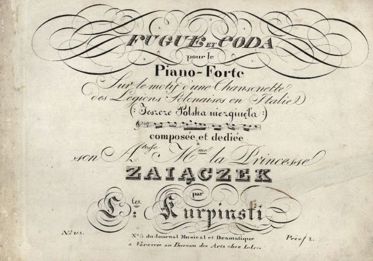 FUGUE ET CODA
pour le
Piano-Forte
Sur le motif d'une Chansonette
des Légions Polonaises en Italie
(: Jeszcze Polska niezginęła :)
composée et dediée
à
son Mme la Princesse
ZAIĄCZEK
par
Ch: Kurpinski
No 5 du Journal Musical et Dramatique
à Varsovie au Bureau des Arts chez